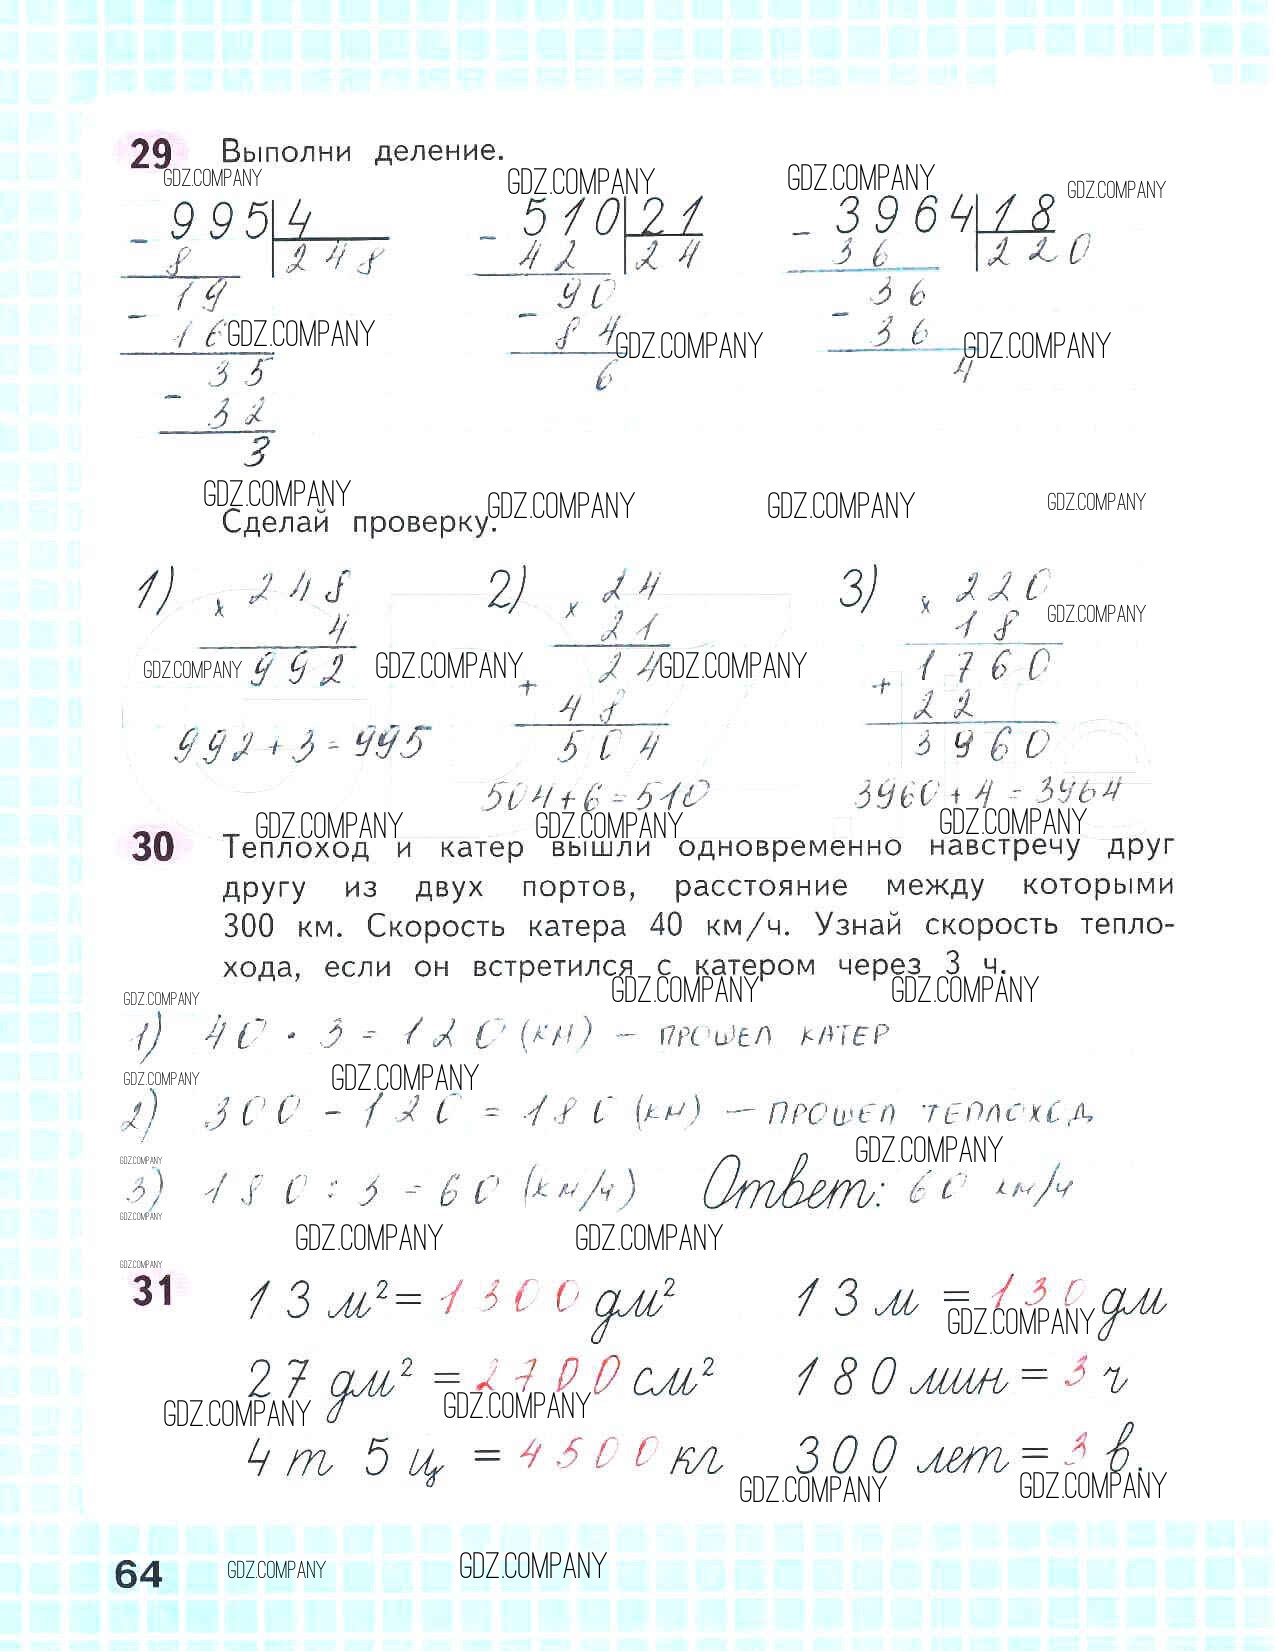 29 Выполни деление.
GDZ.COMPANY GDZ.COMPANY GDZ.COMPANY GDZ.COMPANY
- 995 | 4 - 510 | 21 - 3964 | 18
8 248 42 24 36 220
- 19 90 36
16 - 84 - 36
GDZ.COMPANY GDZ.COMPANY GDZ.COMPANY
35 6 4
- 32
3
GDZ.COMPANY GDZ.COMPANY GDZ.COMPANY GDZ.COMPANY
Сделай проверку.
1) x 248 2) x 24 3) x 220
4 21 18
GDZ.COMPANY
992 24 1760
GDZ.COMPANY GDZ.COMPANY GDZ.COMPANY
+ 48 + 22
992 + 3 = 995 504 3960
504 + 6 = 510 3960 + 4 = 3964
GDZ.COMPANY GDZ.COMPANY GDZ.COMPANY
30 Теплоход и катер вышли одновременно навстречу друг
другу из двух портов, расстояние между которыми
300 км. Скорость катера 40 км/ч. Узнай скорость тепло-
хода, если он встретился с катером через 3 ч.
GDZ.COMPANY GDZ.COMPANY GDZ.COMPANY
1) 40 · 3 = 120 (км) — прошел катер
GDZ.COMPANY GDZ.COMPANY
2) 300 - 120 = 180 (км) — прошел теплоход
GDZ.COMPANY GDZ.COMPANY
3) 180 : 3 = 60 (км/ч) Ответ: 60 км/ч
GDZ.COMPANY GDZ.COMPANY GDZ.COMPANY
GDZ.COMPANY
31 13 м² = 1300 дм² 13 м = 130 дм
GDZ.COMPANY
27 дм² = 2700 см² 180 мин = 3 ч
GDZ.COMPANY GDZ.COMPANY
4 т 5 ц = 4500 кг 300 лет = 3 в.
GDZ.COMPANY GDZ.COMPANY
64 GDZ.COMPANY GDZ.COMPANY